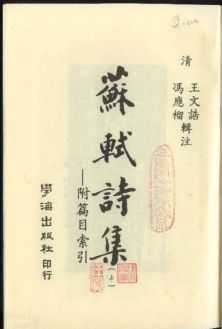 清 王文誥
馮應榴輯注
蘇軾詩集(上)
—附篇目索引
學海出版社印行